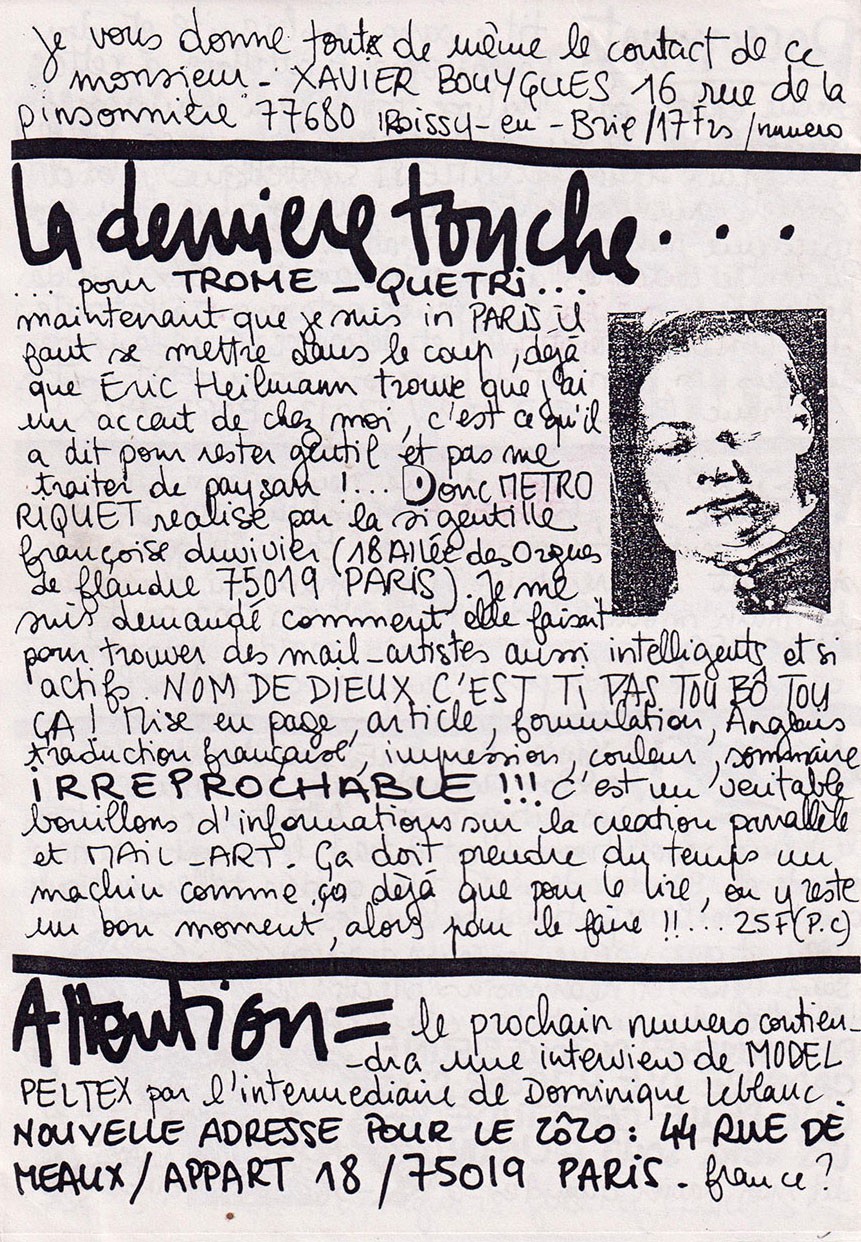 je vous donne tout de même le contact de ce
monsieur - XAVIER BOUYGUES 16 rue de la
pinsonnière 77680 ROissy-en-Brie/17Frs/numero
la derniere touche...
... pour TROME - QUETRi...
maintenant que je suis in PARIS il
faut se mettre dans le coup, dejà
que Éric Heilmann trouve que j'ai
un accent de chez moi, c'est ce qu'il
a dit pour rester gentil et pas me
traiter de paysan !... Donc METRO
RIQUET realisé par la si gentille
françoise duvivier (18 Allée des Orgues
de flandre 75019 PARIS). Je me
suis demandé comment elle faisait
pour trouver des mail-artistes aussi intelligents et si
actifs. NOM DE DIEUX C'EST TI PAS TOU BÔ TOU
ÇA ! Mise en page, article, formulation, Anglais
traduction française, impression, couleur, sommaire
iRREPROCHABLE !!! c'est un veritable
bouillons d'informations sur la creation parrallèle
et MAiL-ART. Ça doit prendre du temps un
machin comme ça, dèjà que pour le lire, on y reste
un bon moment, alors pour le faire !!... 25F(P.C)
Attention= le prochain numero contien-
-dra une interview de MODEL
PELTEX par l'intermediaire de Dominique Leblanc.
NOUVELLE ADRESSE POUR LE ZÔZO : 44 RUE DE
MEAUX/APPART 18/75019 PARIS. france?